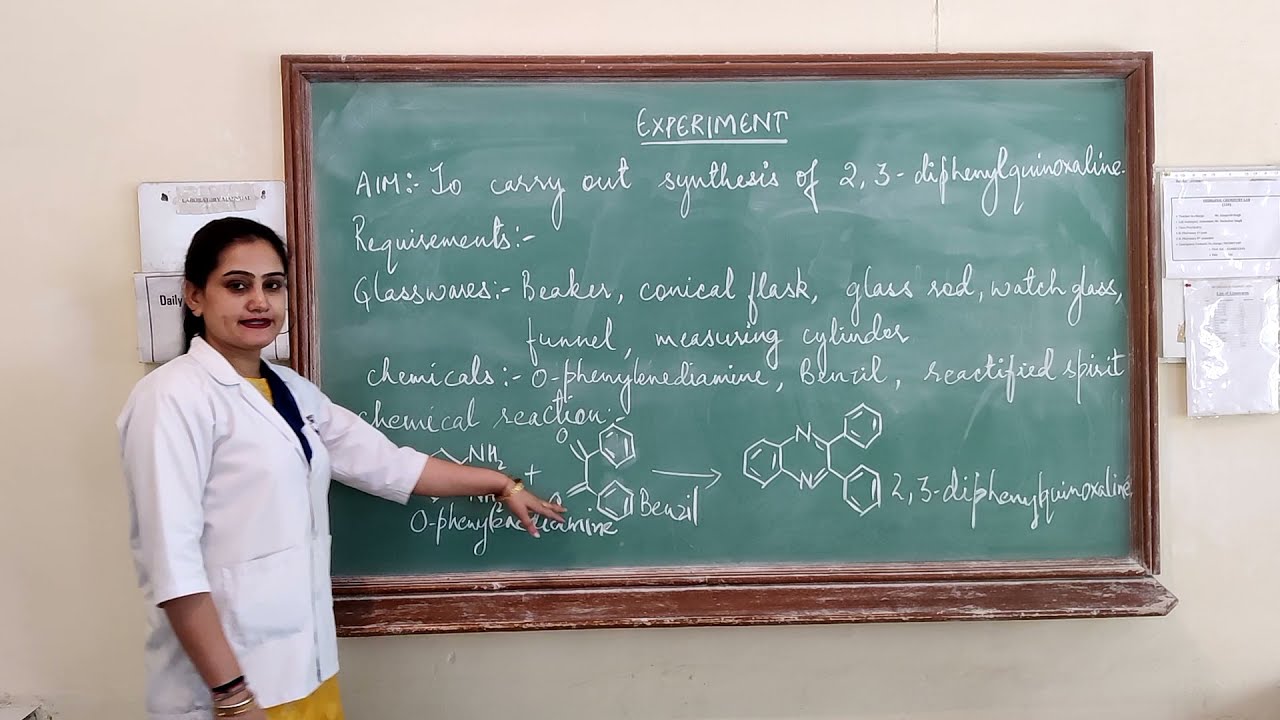 EXPERIMENT
AIM:- To carry out synthesis of 2,3-diphenylquinoxaline.
Requirements:-
Glasswares:- Beaker, conical flask, glass rod, watch glass,
funnel, measuring cylinder
chemicals:- O-phenylenediamine, Benzil, reactified spirit
chemical reaction:-
NH2 + O O → N N
O-phenylenediamine Benzil 2,3-diphenylquinoxaline
LABORATORY MANUAL
Daily